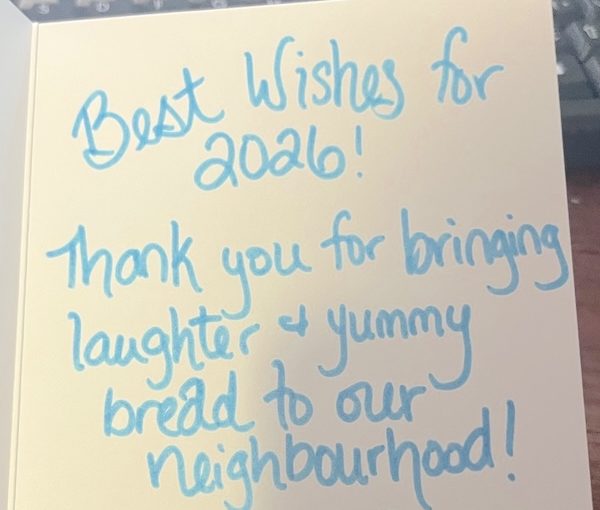 Best Wishes for
2026!
Thank you for bringing
laughter & yummy
bread to our
neighbourhood!